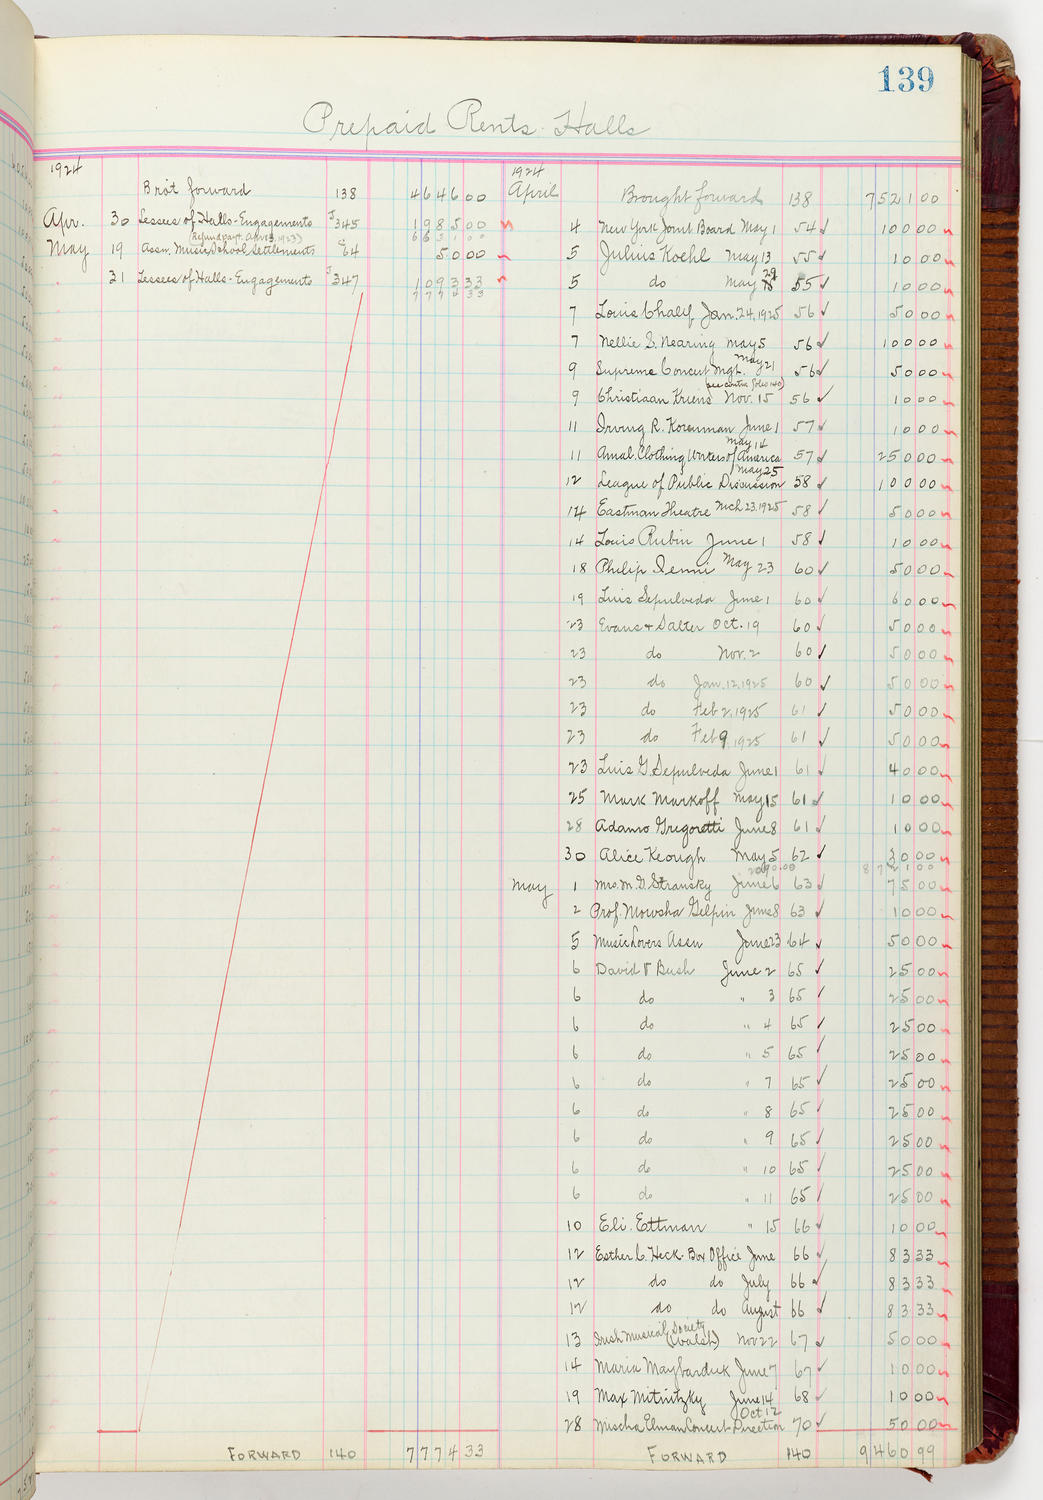 139
Prepaid Rents. Halls
1924
Bro't forward 138 4646 00
Apr. 30 Lessees of Halls-Engagements J345 1985 00
(Refund payt. Apr 3, 1923) 6631 00
May 19 Assn. Music School Settlements C64 50 00
" 31 Lessees of Halls-Engagements J347 1093 33
7774 33
FORWARD 140 7774 33
1924
April Brought forward 138 7521 00
4 New York Joint Board May 1 54 ✓ 100 00
5 Julius Koehl May 13 55 ✓ 10 00
5 do May 29 55 ✓ 10 00
7 Louis Chalif Jan. 24, 1925 56 ✓ 50 00
7 Nellie S. Nearing May 5 56 ✓ 100 00
9 Supreme Concert Mgt. May 21 56 ✓ 50 00
(see contra folio 140)
9 Christiaan Kriens Nov. 15 56 ✓ 10 00
11 Irving R. Korenman June 1 57 ✓ 10 00
May 14
11 Amal. Clothing Workers of America 57 ✓ 250 00
May 25
12 League of Public Discussion 58 ✓ 100 00
14 Eastman Theatre Mch 23, 1925 58 ✓ 50 00
14 Louis Rubin June 1 58 ✓ 10 00
18 Philip May 23 60 ✓ 50 00
19 Luis Sepulveda June 1 60 ✓ 60 00
23 Evans & Salter Oct. 19 60 ✓ 50 00
23 do Nov. 2 60 ✓ 50 00
23 do Jan. 12, 1925 60 ✓ 50 00
23 do Feb 2, 1925 61 ✓ 50 00
23 do Feb 9, 1925 61 ✓ 50 00
23 Luis G. Sepulveda June 1 61 ✓ 40 00
25 Mark Markoff May 15 61 ✓ 10 00
28 Adamo Gregoretti June 8 61 ✓ 10 00
30 Alice Keough May 5 62 ✓ 30 00
8721 00
May 1 Mrs. M. G. Stransky June 6 63 ✓ 75 00
2 Prof. Mowsha Gelpin June 8 63 ✓ 10 00
5 Music Lovers Assn June 23 64 ✓ 50 00
6 David V Bush June 2 65 ✓ 25 00
6 do " 3 65 ✓ 25 00
6 do " 4 65 ✓ 25 00
6 do " 5 65 ✓ 25 00
6 do " 7 65 ✓ 25 00
6 do " 8 65 ✓ 25 00
6 do " 9 65 ✓ 25 00
6 do " 10 65 ✓ 25 00
6 do " 11 65 ✓ 25 00
10 Eli. Ettman " 15 66 ✓ 10 00
12 Esther C. Heck-Box Office June 66 ✓ 83 33
12 do do July 66 ✓ 83 33
12 do do August 66 ✓ 83 33
13 Irish Musical Society (Walsh) Nov 22 67 ✓ 50 00
14 Maria Maybarduk June 7 67 ✓ 10 00
19 Max Mitnitzky June 14 68 ✓ 10 00
Oct 12
28 Mischa Elman Concert Direction 70 ✓ 50 00
FORWARD 140 9460 99